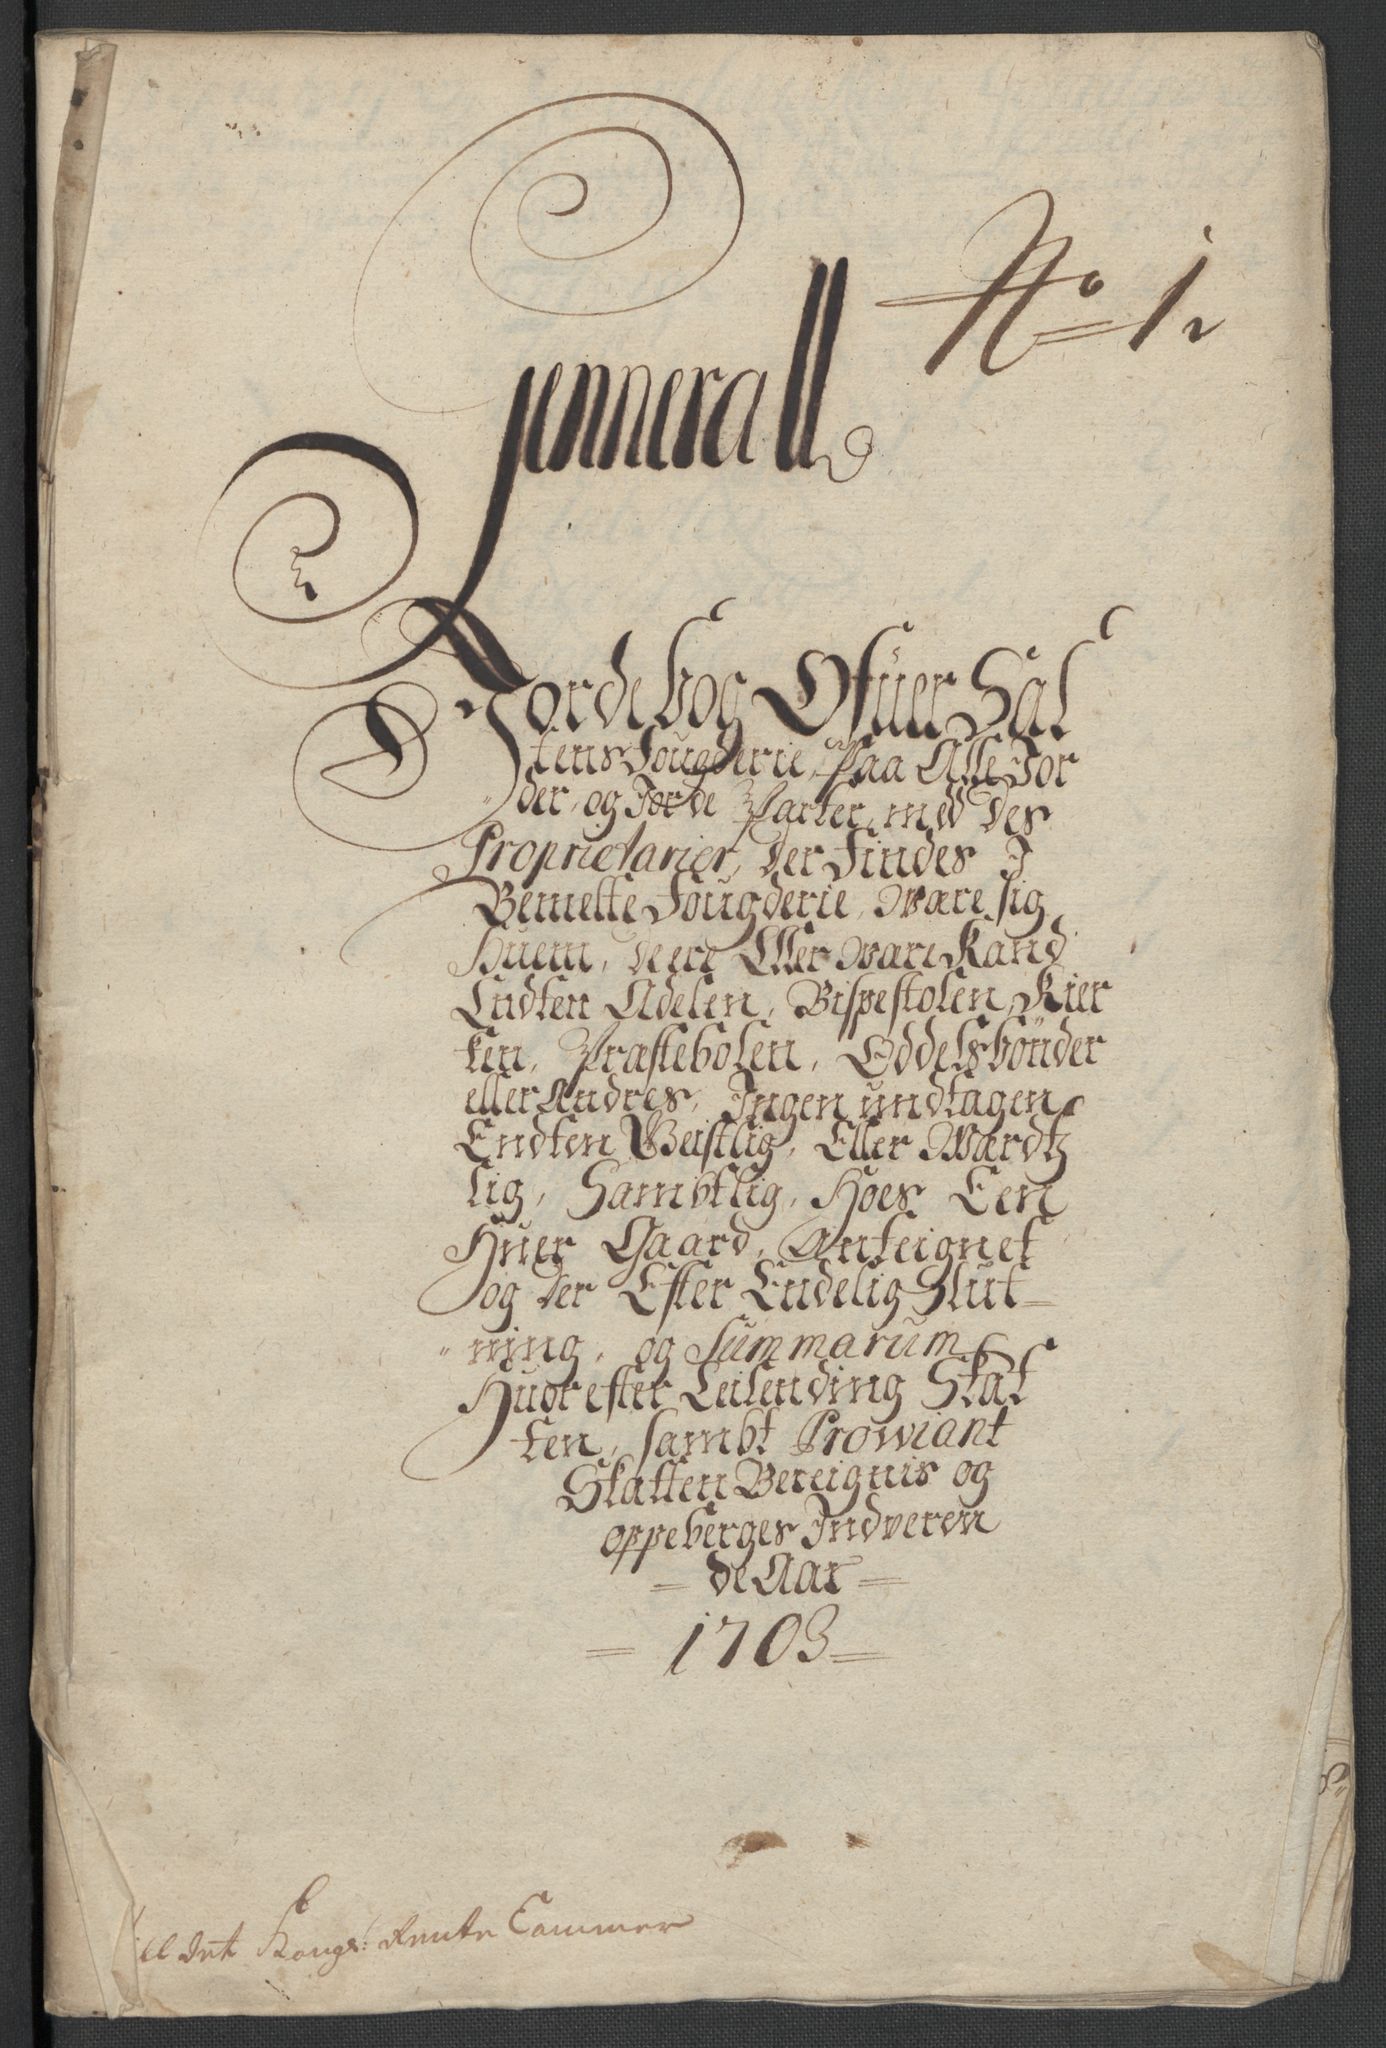 No 1
Jennerall
Jordebog Ofuer Sal
tens Fougderie, Paa Alle Jor
der, og Jorde Parter, med des
Proprietarier, der Findes I
Bemelte Fougderie, Være sig
Huem, de ere Eller være Kand
Endten Adelen, Bispestolen, Kier
ken, Præstebolen, Oddelsbönder
eller Andres, Ingen undtagen
Endten Geistlig, Eller Wardtz
lig, Sambtlig, Hoes Een
Huer Gaard, Anteignet
og der Efter Endelig Slut
ning, og Summarum
Huorefter Leilending Skat
ten, sambt Prowiant
Skatten Bereignis og
oppeberges Indveren
de Aar
1703
till det Kongl: Rente Cammer